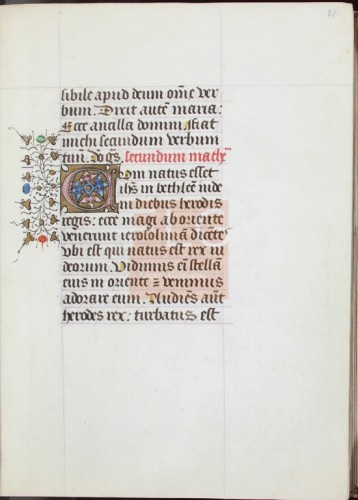 sibile apud deum om̄e ver
bum. Dixit autē maria:
Ecce ancilla domini fiat
michi secundum verbum
tuū. Dō gr̄s. secundum mathē
Cum natus esset
ihs̄ in bethleem iude
in diebus herodis
regis: ecce magi ab oriente
venerunt ierosolimā dicētes
vbi est qui natus est rex iu
deorum. Vidimus ei͞ stellā
eius in oriente ⁊ venimus
adorare eum. Audiēs aūt
herodes rex: turbatus est